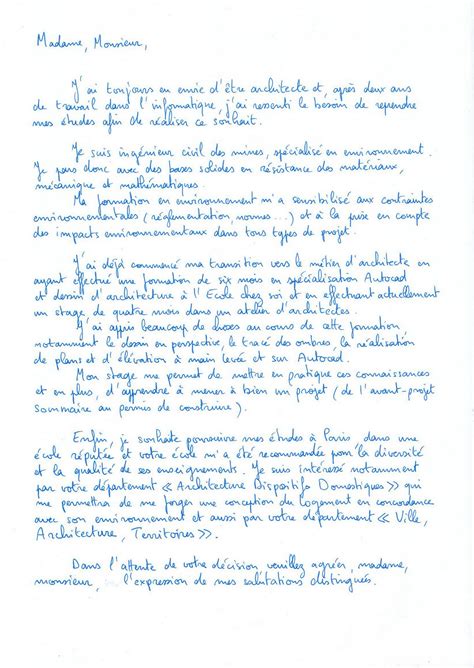 Madame, Monsieur,
J'ai toujours eu envie d'être architecte et, après deux ans
de travail dans l'informatique, j'ai ressenti le besoin de reprendre
mes études afin de réaliser ce souhait.
Je suis ingénieur civil des mines, spécialisé en environnement.
Je pars donc avec des bases solides en résistance des matériaux,
mécanique et mathématiques.
Ma formation en environnement m'a sensibilisé aux contraintes
environnementales (réglementation, normes...) et à la prise en compte
des impacts environnementaux dans tous types de projet.
J'ai déjà commencé ma transition vers le métier d'architecte en
ayant effectué une formation de six mois en spécialisation Autocad
et dessin d'architecture à l'Ecole chez soi et en effectuant actuellement
un stage de quatre mois dans un atelier d'architectes.
J'ai appris beaucoup de choses au cours de cette formation,
notamment le dessin en perspective, le tracé des ombres, la réalisation
de plans et d'élévation à main levée et sur Autocad.
Mon stage me permet de mettre en pratique ces connaissances
et en plus, d'apprendre à mener à bien un projet (de l'avant-projet
sommaire au permis de construire).
Enfin, je souhaite poursuivre mes études à Paris, dans une
école réputée et votre école m'a été recommandée pour la diversité
et la qualité de ses enseignements. Je suis intéressé notamment
par votre département « Architecture Dispositifs Domestiques » qui
me permettra de me forger une conception du logement en concordance
avec son environnement et aussi par votre département « Ville,
Architecture, Territoires ».
Dans l'attente de votre décision veuillez agréer, madame,
monsieur, l'expression de mes salutations distinguées.